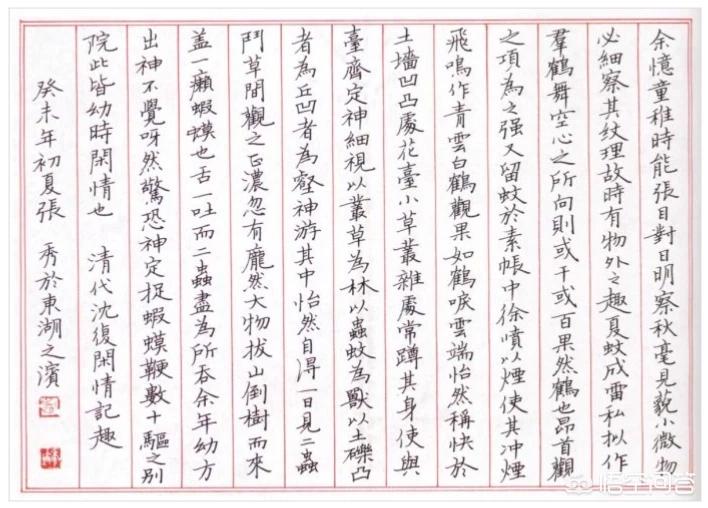 余憶童稚時能張目對日明察秋毫見藐小微物
必細察其紋理故時有物外之趣夏蚊成雷私拟作
羣鶴舞空心之所向則或千或百果然鶴也昂首觀
之項為之强又留蚊於素帳中徐噴以煙使其冲煙
飛鳴作青雲白鶴觀果如鶴唳雲端怡然稱快於
土墻凹凸處花臺小草叢雜處常蹲其身使與
臺齊定神細視以叢草為林以蟲蚊為獸以土礫凸
者為丘凹者為壑神游其中怡然自得一日見二蟲
鬥草間觀之正濃忽有龐然大物拔山倒樹而來
盖一癩蝦蟆也舌一吐而二蟲盡為所吞余年幼方
出神不覺呀然驚恐神定捉蝦蟆鞭數十驅之别
院此皆幼時閑情也 清代沈復閑情記趣
癸未年初夏張 秀於東湖之濱
悟空问答